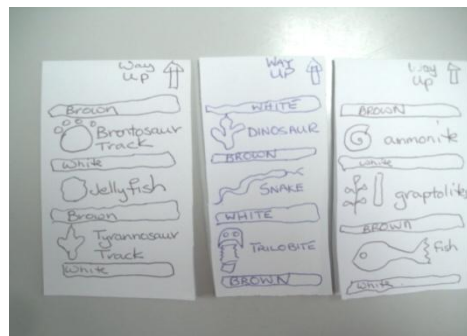 Way
Up
Brown
Brontosaur
Track
White
Jellyfish
Brown
Tyrannosaur
Track
White
WAY
UP
WHITE
DINOSAUR
BROWN
SNAKE
WHITE
TRILOBITE
BROWN
Way
Up
BROWN
ammonite
White
graptolite
BROWN
fish
White